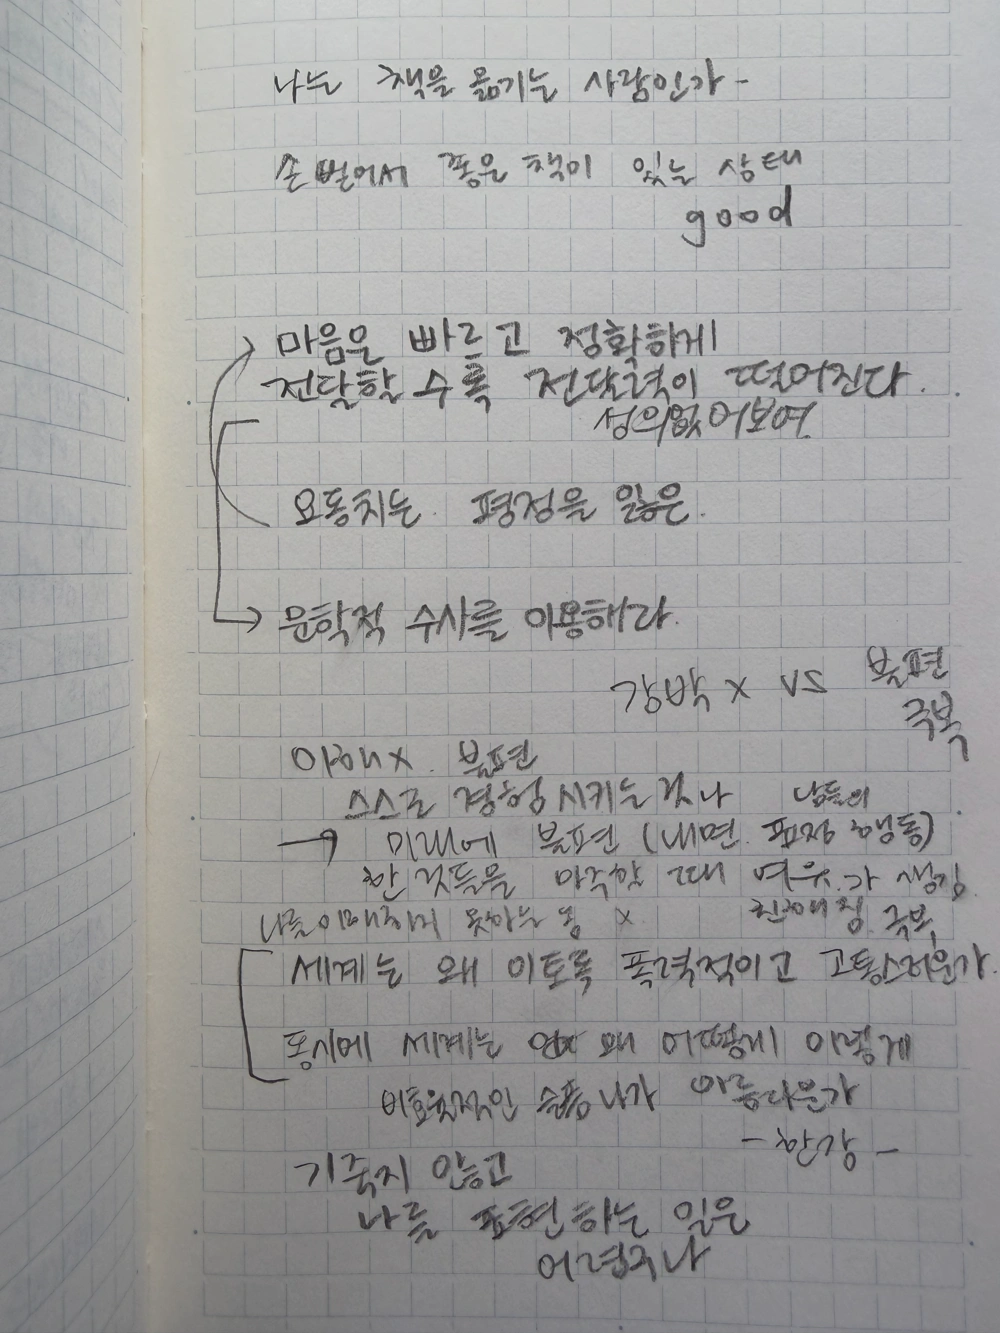 나는 책을 옮기는 사람인가 -
손 벌어서 좋은 책이 있는 상태
good
마음은 빠르고 정확하게
전달할 수록 전달력이 떨어진다.
성의없어보여
요동치는. 평정을 잃은.
문학적 수사를 이용해라.
강박 x vs 불편
극복
이해x. 불편
스스로 경험시키는 것나 남들의
→ 미래에 불편 (내면. 표정 행동)
한 것들을 마주할 때 여유.가 생김.
나를 이해하지 못하는 동 x. 친해짐 극복
세계는 왜 이토록 폭력적이고 고통스러운가.
동시에 세계는 왜 어떻게 이렇게
비효율적인 슬픔 아름다운가
- 한강 -
기죽지 않고
나를 표현하는 일은
어렵구나